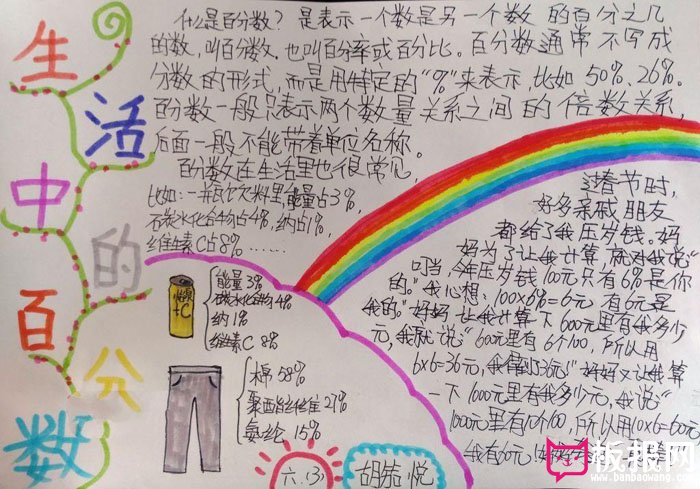 生活中的百分数
什么是百分数？是表示一个数是另一个数 的百分之几
的数，叫百分数。也叫百分率或百分比。百分数通常不写成
分数的形式，而是用特定的“%”来表示，比如 50%、26%。
百分数一般只表示两个数量关系之间的倍数关系，
后面一般不能带着单位名称。
百分数在生活里也很常见，
比如：一瓶饮料里能量占3%，
碳水化合物占4%，纳占1%，
维生素C占8%……
能量3%
碳水化合物 4%
纳1%
维素C 8%
+C
棉 58%
聚酯纤维 27%
氨纶 15%
过春节时，
好多亲戚朋友
都给了我压岁钱。妈
妈为了让我计算，就对我说“
叮当，今年压岁钱100元只有6%是你
的。”我心想：100×6%=6元，有6元是
我的。”妈妈让我计算一下600元里有我多少
元，我就说“600元里有6个100，所以用
6×6=36元，我得到36元！”妈妈又让我算
一下1000元里有我多少元，我说“
1000元里有10个100，所以用10×6=60元
我有60元！
六.(3)
胡喆悦
板报网
www.banbaowang.com